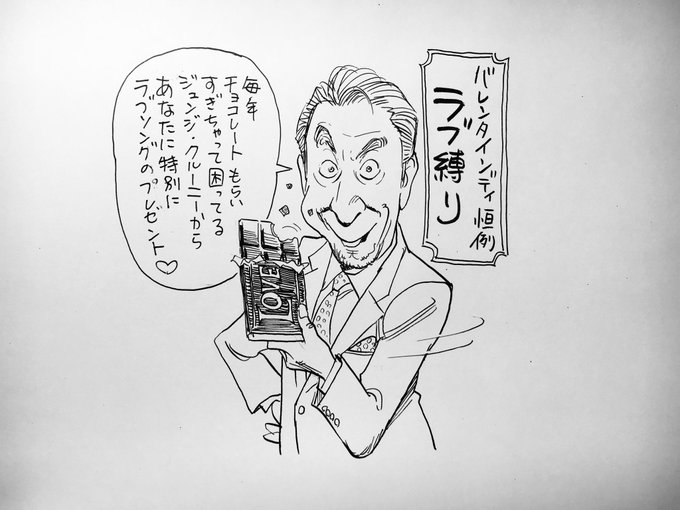 バレンタインディ恒例
ラブ縛り
毎年
チョコレートもらい
すぎちゃって困ってる
ジュンジ・クルーニーから
あなたに特別に
ラブソングのプレゼント♡
LOVE